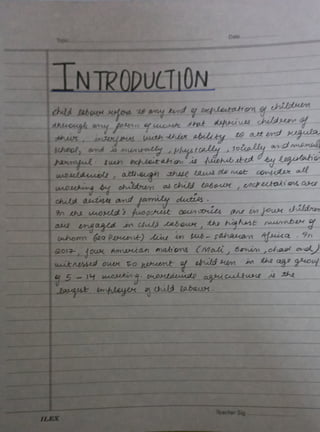 Topic
Date
INTRODUCTION
Child labour refers to any kind of exploitation of children
through any form of work that deprives children of
their, interferes with their ability to attend regular
school, and is mentally, physically, socially and morally
harmful. Such exploitation is prohibited by legislation
worldwide, although these laws do not consider all
working by children as child labour, exceptions are
child artists and family duties.
In the world's poorest countries one in four children
are engaged in child labour, the highest number of
whom (20 percent) live in sub-saharan Africa. In
2017, four American nations (Mali, Benin, chad and)
witnessed over 50 percent of children in the age group
of 5 - 14 working. worldwide agriculture is the
largest employer of child labour.
Teacher Sig
ILEX